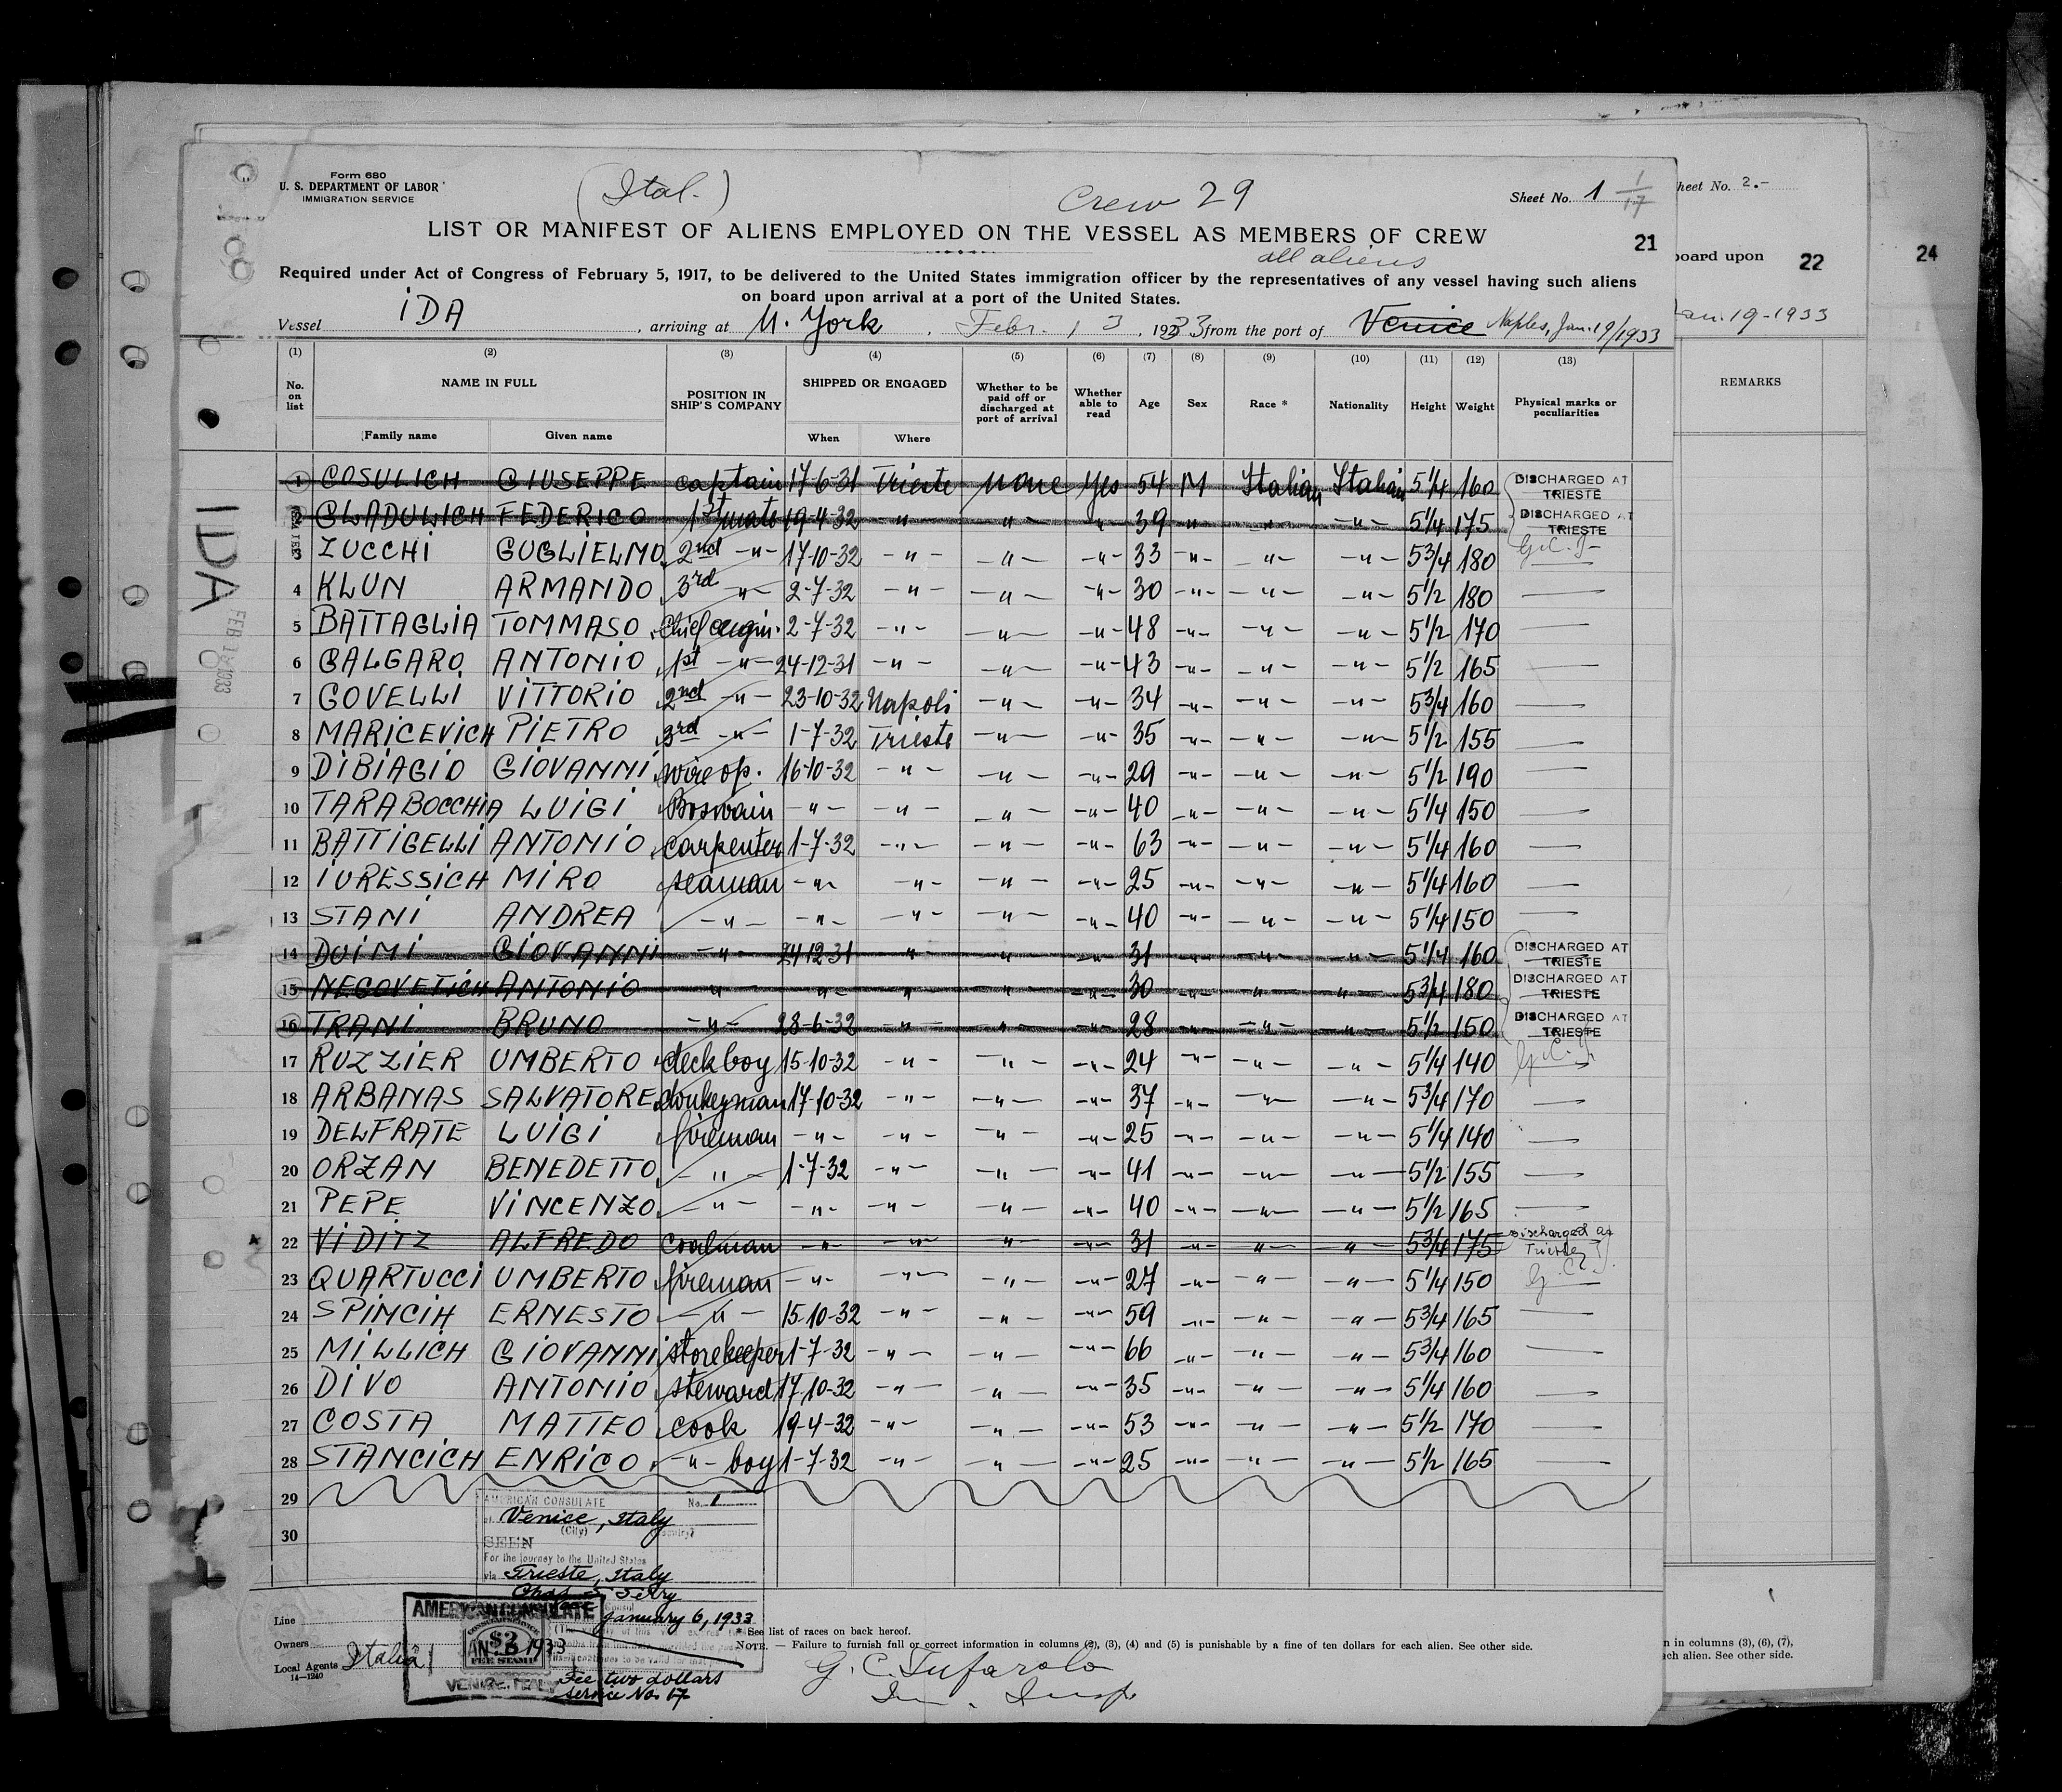 Form 680
U. S. DEPARTMENT OF LABOR
IMMIGRATION SERVICE
(Ital.)
Crew 29
Sheet No. 1 1/17
Sheet No. 2.-
LIST OR MANIFEST OF ALIENS EMPLOYED ON THE VESSEL AS MEMBERS OF CREW
21
all aliens
board upon 22
24
Required under Act of Congress of February 5, 1917, to be delivered to the United States immigration officer by the representatives of any vessel having such aliens
on board upon arrival at a port of the United States.
Vessel IDA, arriving at N. York, Febr. 13, 1933 from the port of Venice Naples, Jan. 19/1933
Jan. 19-1933
(1) (2) (3) (4) (5) (6) (7) (8) (9) (10) (11) (12) (13)
No. on list NAME IN FULL POSITION IN SHIP'S COMPANY SHIPPED OR ENGAGED Whether to be paid off or discharged at port of arrival Whether able to read Age Sex Race * Nationality Height Weight Physical marks or peculiarities
REMARKS
Family name Given name When Where
1 COSULICH GIUSEPPE captain 17-6-31 Trieste None Yes 54 M Italian Italian 5 1/4 160 DISCHARGED AT TRIESTE
2 GLADULICH FEDERICO 1st mate 19-4-32 -"- -"- -"- 39 -"- -"- -"- 5 1/4 175 DISCHARGED AT TRIESTE
3 ZUCCHI GUGLIELMO 2nd -"- 17-10-32 -"- -"- -"- 33 -"- -"- -"- 5 3/4 180 G.C.T-
4 KLUN ARMANDO 3rd -"- 2-7-32 -"- -"- -"- 30 -"- -"- -"- 5 1/2 180 —
5 BATTAGLIA TOMMASO Chief engin. 2-7-32 -"- -"- -"- 48 -"- -"- -"- 5 1/2 170 —
6 CALGARO ANTONIO 1st -"- 24-12-31 -"- -"- -"- 43 -"- -"- -"- 5 1/2 165 —
7 GOVELLI VITTORIO 2nd -"- 23-10-32 Napoli -"- -"- 34 -"- -"- -"- 5 3/4 160 —
8 MARICEVICH PIETRO 3rd -"- 1-7-32 Trieste -"- -"- 35 -"- -"- -"- 5 1/2 155 —
9 DIBIAGIO GIOVANNI wire op. 16-10-32 -"- -"- -"- 29 -"- -"- -"- 5 1/2 190 —
10 TARABOCCHIA LUIGI Boswain -"- -"- -"- -"- 40 -"- -"- -"- 5 1/4 150 —
11 BATTIGELLI ANTONIO carpenter 1-7-32 -"- -"- -"- 63 -"- -"- -"- 5 1/4 160 —
12 IURESSICH MIRO seaman -"- -"- -"- -"- 25 -"- -"- -"- 5 1/4 160 —
13 STANI ANDREA -"- -"- -"- -"- -"- 40 -"- -"- -"- 5 1/4 150 —
14 DUIMI GIOVANNI -"- 24-12-31 -"- -"- -"- 31 -"- -"- -"- 5 1/4 160 DISCHARGED AT TRIESTE
15 NEGOVETICH ANTONIO -"- -"- -"- -"- -"- 30 -"- -"- -"- 5 3/4 180 DISCHARGED AT TRIESTE
16 TRANI BRUNO -"- 28-6-32 -"- -"- -"- 28 -"- -"- -"- 5 1/2 150 DISCHARGED AT TRIESTE
17 RUZZIER UMBERTO deck boy 15-10-32 -"- -"- -"- 24 -"- -"- -"- 5 1/4 140 G.C.T.
18 ARBANAS SALVATORE donkeyman 17-10-32 -"- -"- -"- 37 -"- -"- -"- 5 3/4 170 —
19 DELFRATE LUIGI fireman -"- -"- -"- -"- 25 -"- -"- -"- 5 1/4 140 —
20 ORZAN BENEDETTO -"- 1-7-32 -"- -"- -"- 41 -"- -"- -"- 5 1/2 155 —
21 PEPE VINCENZO -"- -"- -"- -"- -"- 40 -"- -"- -"- 5 1/2 165 —
22 VIDITZ ALFREDO coalman -"- -"- -"- -"- 31 -"- -"- -"- 5 3/4 175 Discharged at Trieste
23 QUARTUCCI UMBERTO fireman -"- -"- -"- -"- 27 -"- -"- -"- 5 1/4 150 G.C.T.
24 SPINCIH ERNESTO -"- 15-10-32 -"- -"- -"- 59 -"- -"- -"- 5 3/4 165 —
25 MILLICH GIOVANNI storekeeper 1-7-32 -"- -"- -"- 66 -"- -"- -"- 5 3/4 160 —
26 DIVO ANTONIO steward 17-10-32 -"- -"- -"- 35 -"- -"- -"- 5 1/4 160 —
27 COSTA MATTEO cook 19-4-32 -"- -"- -"- 53 -"- -"- -"- 5 1/2 170 —
28 STANCICH ENRICO -"- boy 1-7-32 -"- -"- -"- 25 -"- -"- -"- 5 1/2 165 —
29
30
IDA
FEB 1933
AMERICAN CONSULATE No. 1
at Venice, Italy
(City) (Country)
SEEN
For the journey to the United States
via Trieste, Italy
January 6, 1933
AMERICAN CONSULATE
$2
FEE STAMP
JAN 6 1933
VENICE, ITALY
Fee two dollars
Service No. 17
Line
Owners
Local Agents Italia
14-1240
* See list of races on back hereof.
NOTE. — Failure to furnish full or correct information in columns (2), (3), (4) and (5) is punishable by a fine of ten dollars for each alien. See other side.
G. C. Tufarolo
Im. Insp
n in columns (3), (6), (7),
ach alien. See other side.